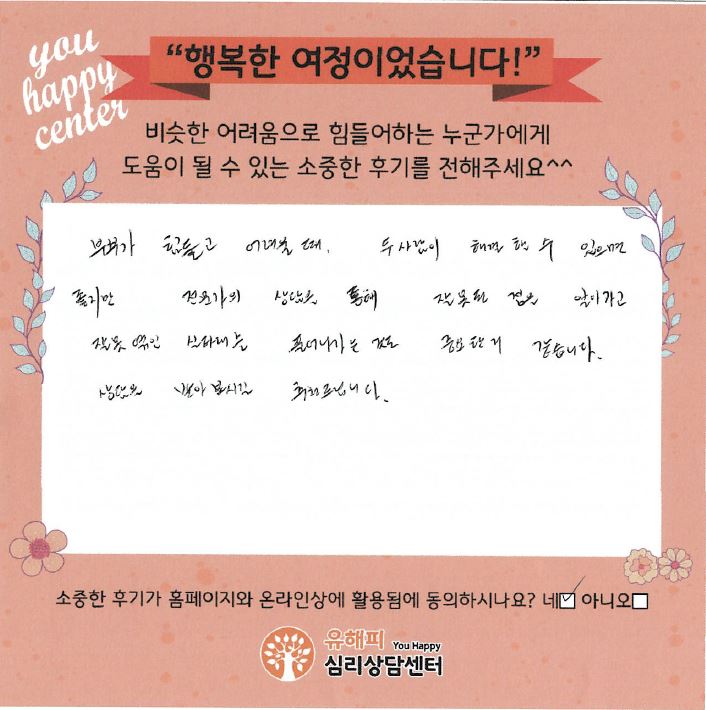 you
happy
center
“행복한 여정이었습니다!”
비슷한 어려움으로 힘들어하는 누군가에게
도움이 될 수 있는 소중한 후기를 전해주세요^^
부부가 힘들고 어려울 때, 두사람이 해결 할 수 있으면
좋지만 전문가의 상담을 통해 잘못된 점을 알아가고
잘못 엮인 실타래를 풀어나가는 것도 중요한거 같습니다.
상담을 받아 보시길 추천드립니다.
소중한 후기가 홈페이지와 온라인상에 활용됨에 동의하시나요? 네☑ 아니오☐
유해피 You Happy
심리상담센터